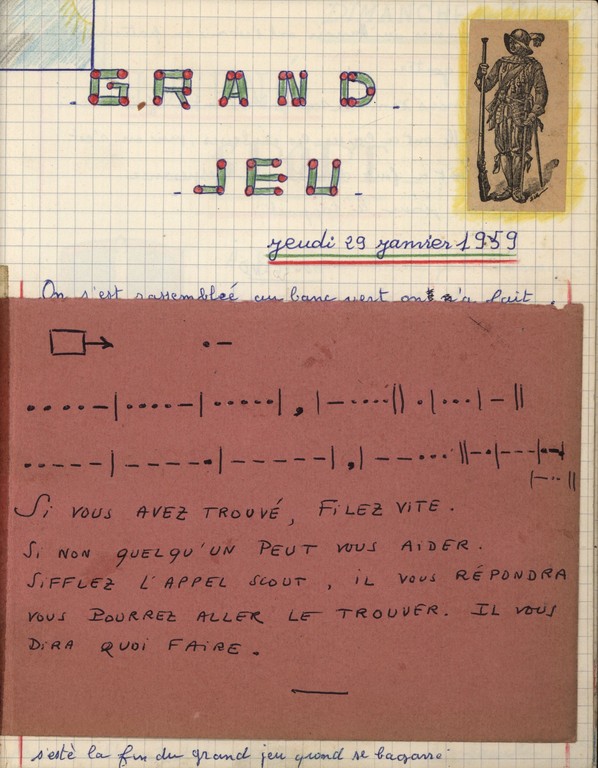 GRAND
JEU
jeudi 29 janvier 1959
On s'est rassembléé au banc vert on n'a fait
. —
. . . . — | . . . . — | . . . . . | , | — . . . . || . | . . . | — ||
. . — — — | — — — — . | — — — — — | , | — — . . . || — . | — — — |
| — . . ||
Si VOUS AVEZ TROUVÉ, FiLEZ ViTE.
Si NON QUELQU'UN PEUT VOUS AiDER.
SiFFLEZ L'APPEL SCOUT, iL VOUS RÉPONDRA
VOUS POURREZ ALLER LE TROUVER. IL VOUS
DiRA QUOi FAiRE.
s'esté la fin du grand jeu quond se bagarre